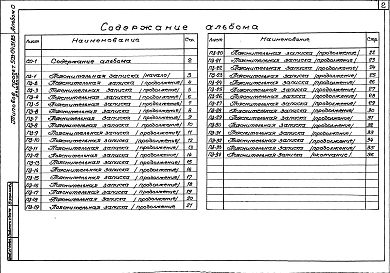 2
Содержание альбома
Лист Наименование Стр.
СО-1 Содержание альбома 2
ПЗ-1 Пояснительная записка (начало) 3
ПЗ-2 Пояснительная записка (продолжение) 4
ПЗ-3 Пояснительная записка (продолжение) 5
ПЗ-4 Пояснительная записка (продолжение) 6
ПЗ-5 Пояснительная записка (продолжение) 7
ПЗ-6 Пояснительная записка (продолжение) 8
ПЗ-7 Пояснительная записка (продолжение) 9
ПЗ-8 Пояснительная записка (продолжение) 10
ПЗ-9 Пояснительная записка (продолжение) 11
ПЗ-10 Пояснительная записка (продолжение) 12
ПЗ-11 Пояснительная записка (продолжение) 13
ПЗ-12 Пояснительная записка (продолжение) 14
ПЗ-13 Пояснительная записка (продолжение) 15
ПЗ-14 Пояснительная записка (продолжение) 16
ПЗ-15 Пояснительная записка (продолжение) 17
ПЗ-16 Пояснительная записка (продолжение) 18
ПЗ-17 Пояснительная записка (продолжение) 19
ПЗ-18 Пояснительная записка (продолжение) 20
ПЗ-19 Пояснительная записка (продолжение) 21
Лист Наименование Стр.
ПЗ-20 Пояснительная записка (продолжение) 22
ПЗ-21 Пояснительная записка (продолжение) 23
ПЗ-22 Пояснительная записка (продолжение) 24
ПЗ-23 Пояснительная записка (продолжение) 25
ПЗ-24 Пояснительная записка (продолжение) 26
ПЗ-25 Пояснительная записка (продолжение) 27
ПЗ-26 Пояснительная записка (продолжение) 28
ПЗ-27 Пояснительная записка (продолжение) 29
ПЗ-28 Пояснительная записка (продолжение) 30
ПЗ-29 Пояснительная записка (продолжение) 31
ПЗ-30 Пояснительная записка (продолжение) 32
ПЗ-31 Пояснительная записка (продолжение) 33
ПЗ-32 Пояснительная записка (продолжение) 34
ПЗ-33 Пояснительная записка (продолжение) 35
ПЗ-34 Пояснительная записка (окончание) 36